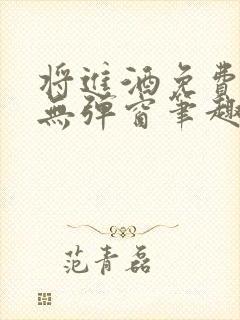 将进酒免费
無弹窗笔趣
范青磊